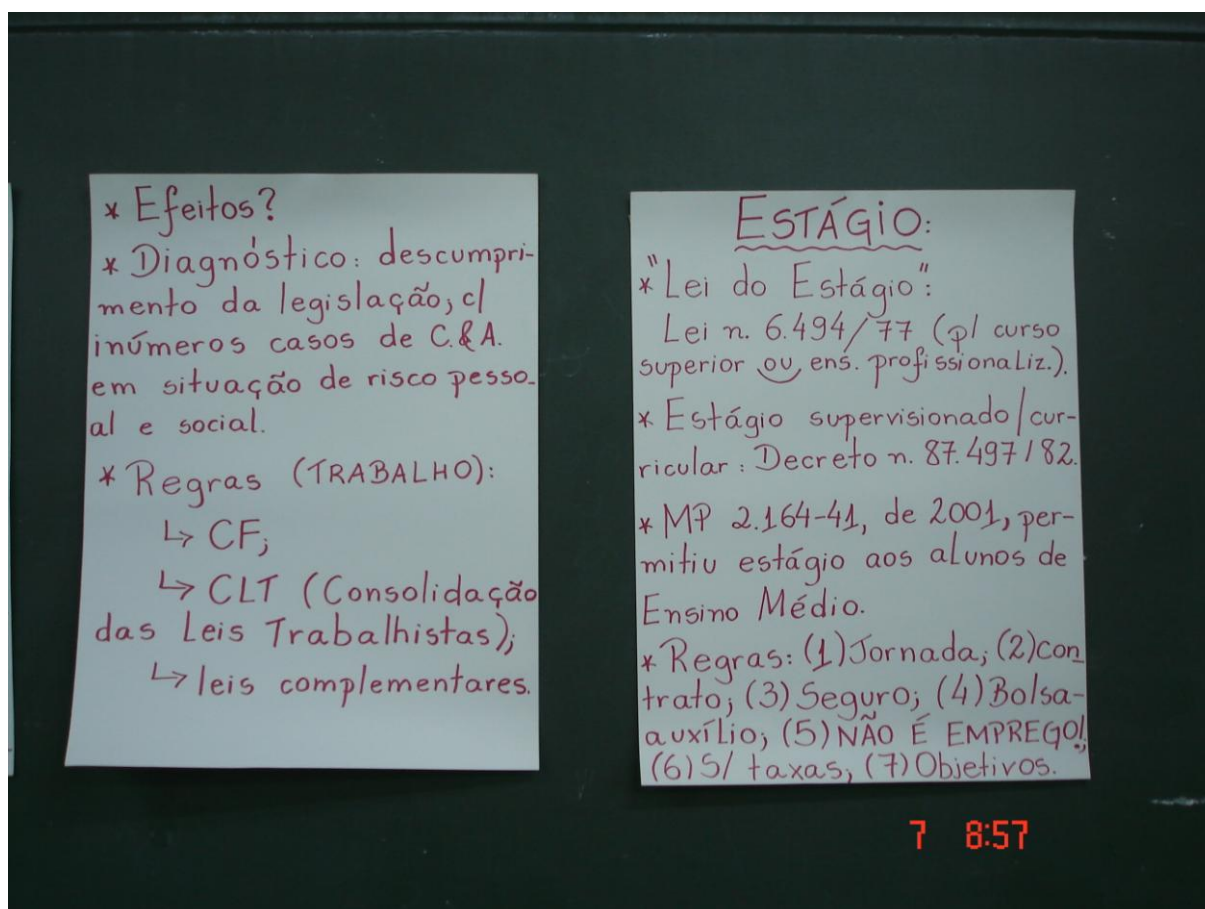 * Efeitos?
* Diagnóstico: descumpri-
mento da legislação, c/
inúmeros casos de C.&A.
em situação de risco pesso-
al e social.
* Regras (TRABALHO):
↳ CF;
↳ CLT (Consolidação
das Leis Trabalhistas);
↳ leis complementares.
ESTÁGIO:
* "Lei do Estágio":
Lei n. 6.494/77 (p/ curso
superior ou ens. profissionaliz.).
* Estágio supervisionado/cur-
ricular: Decreto n. 87.497/82.
* MP 2.164-41, de 2001, per-
mitiu estágio aos alunos de
Ensino Médio.
* Regras: (1) Jornada; (2) con
trato; (3) Seguro; (4) Bolsa-
auxílio; (5) NÃO É EMPREGO!;
(6) S/ taxas; (7) Objetivos.
7 8:57